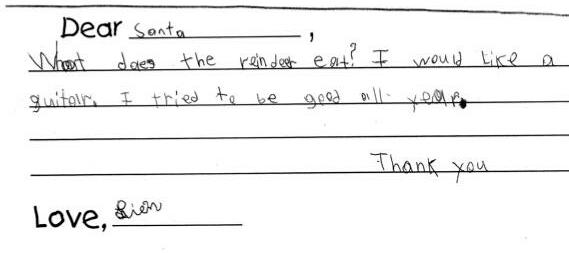 Dear Santa,
What does the reindeer eat? I would like a
guitair. I tried to be good all year.
Thank you
Love,